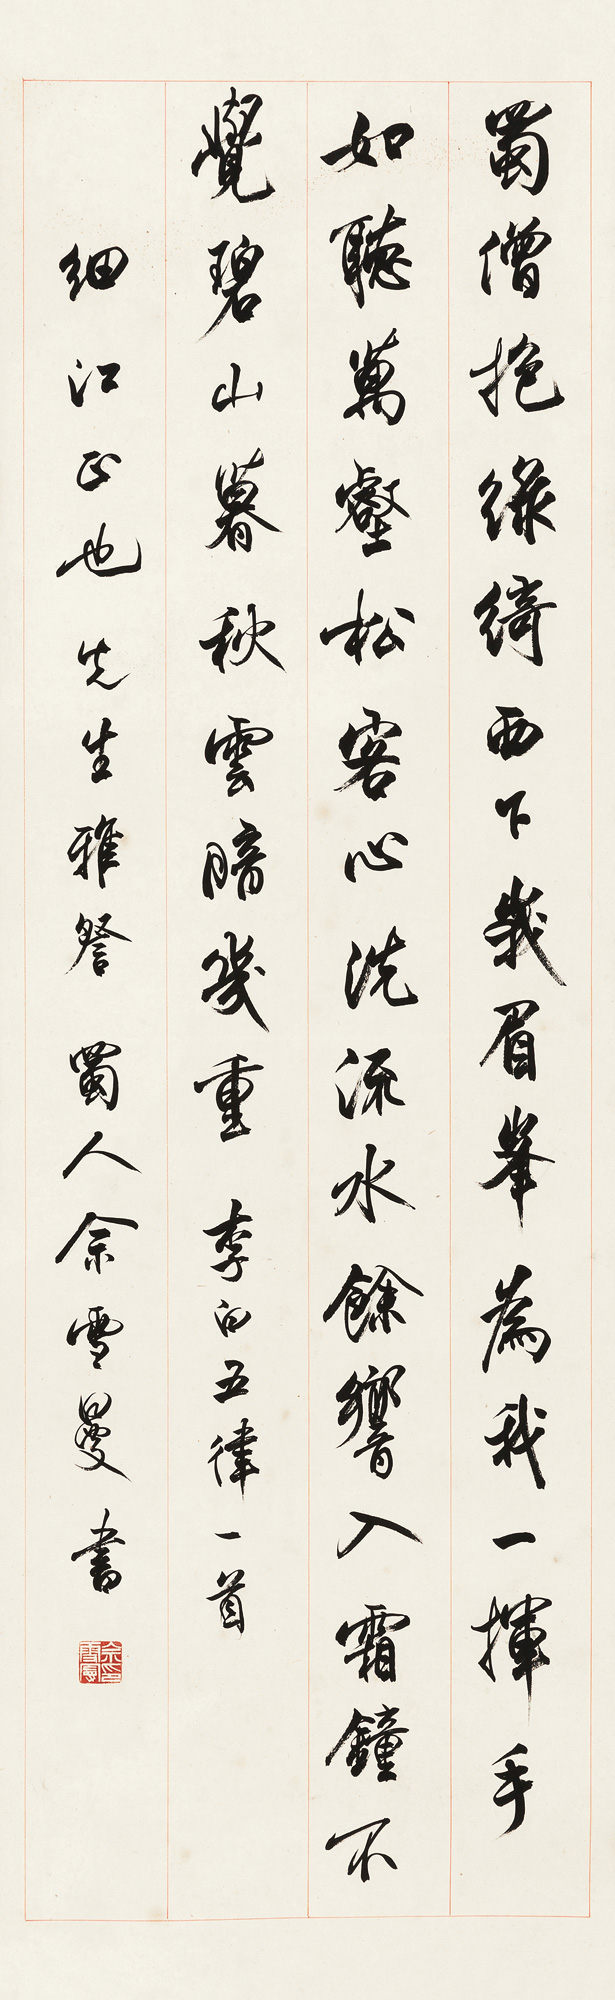 蜀僧抱綠綺西下峩眉峯為我一揮手
如聽萬壑松客心洗流水餘響入霜鐘不
覺碧山暮秋雲暗幾重 李白五律一首
細江正也先生雅詧 蜀人余雪曼書
余雪曼印